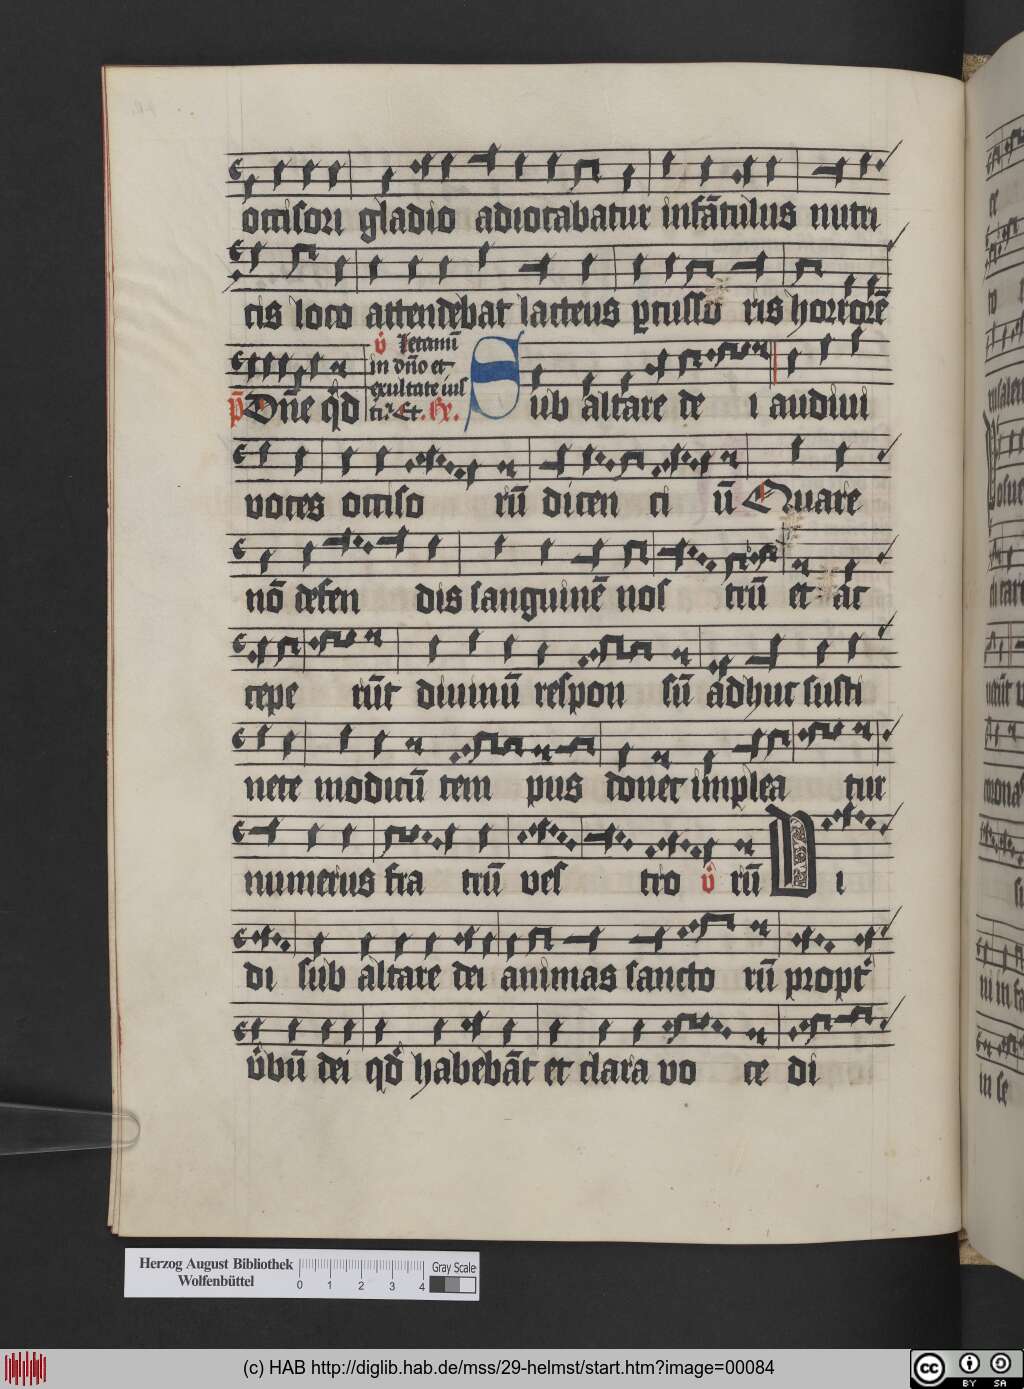 occisori gladio adiocabatur infātulus nutri
cis loco attendebat lacteus ꝑcusso ris horrorē
p̄ Dn̄e qd̓ v̓ Letamī in dn̄o et exultate ius ti. Et. R. Sub altare de i audiui
voces occiso rū dicen ci ū Quare
nō defen dis sanguinē nos trū et ac
cepe rūt diuinū respon sū adhuc susti
nete modicū tem pus donec implea tur
numerus fra trū ves tro v̓ rū Ui
di sub altare dei animas sancto rū propt̓
v̓bū dei qd̓ habebāt et clara vo ce di
Herzog August Bibliothek
Wolfenbüttel
0 1 2 3 4
Gray Scale
(c) HAB http://diglib.hab.de/mss/29-helmst/start.htm?image=00084
cc BY SA